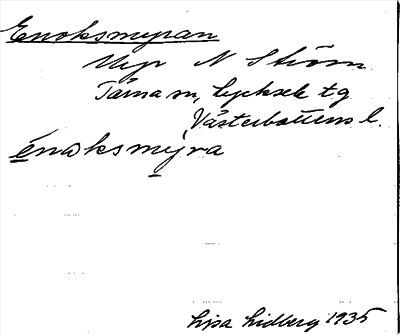 Enoksmyran
Myr N Ström
Tärna sn, Lycksele tg
Västerbottens l.
enaksmyra
Lisa Lidberg 1935